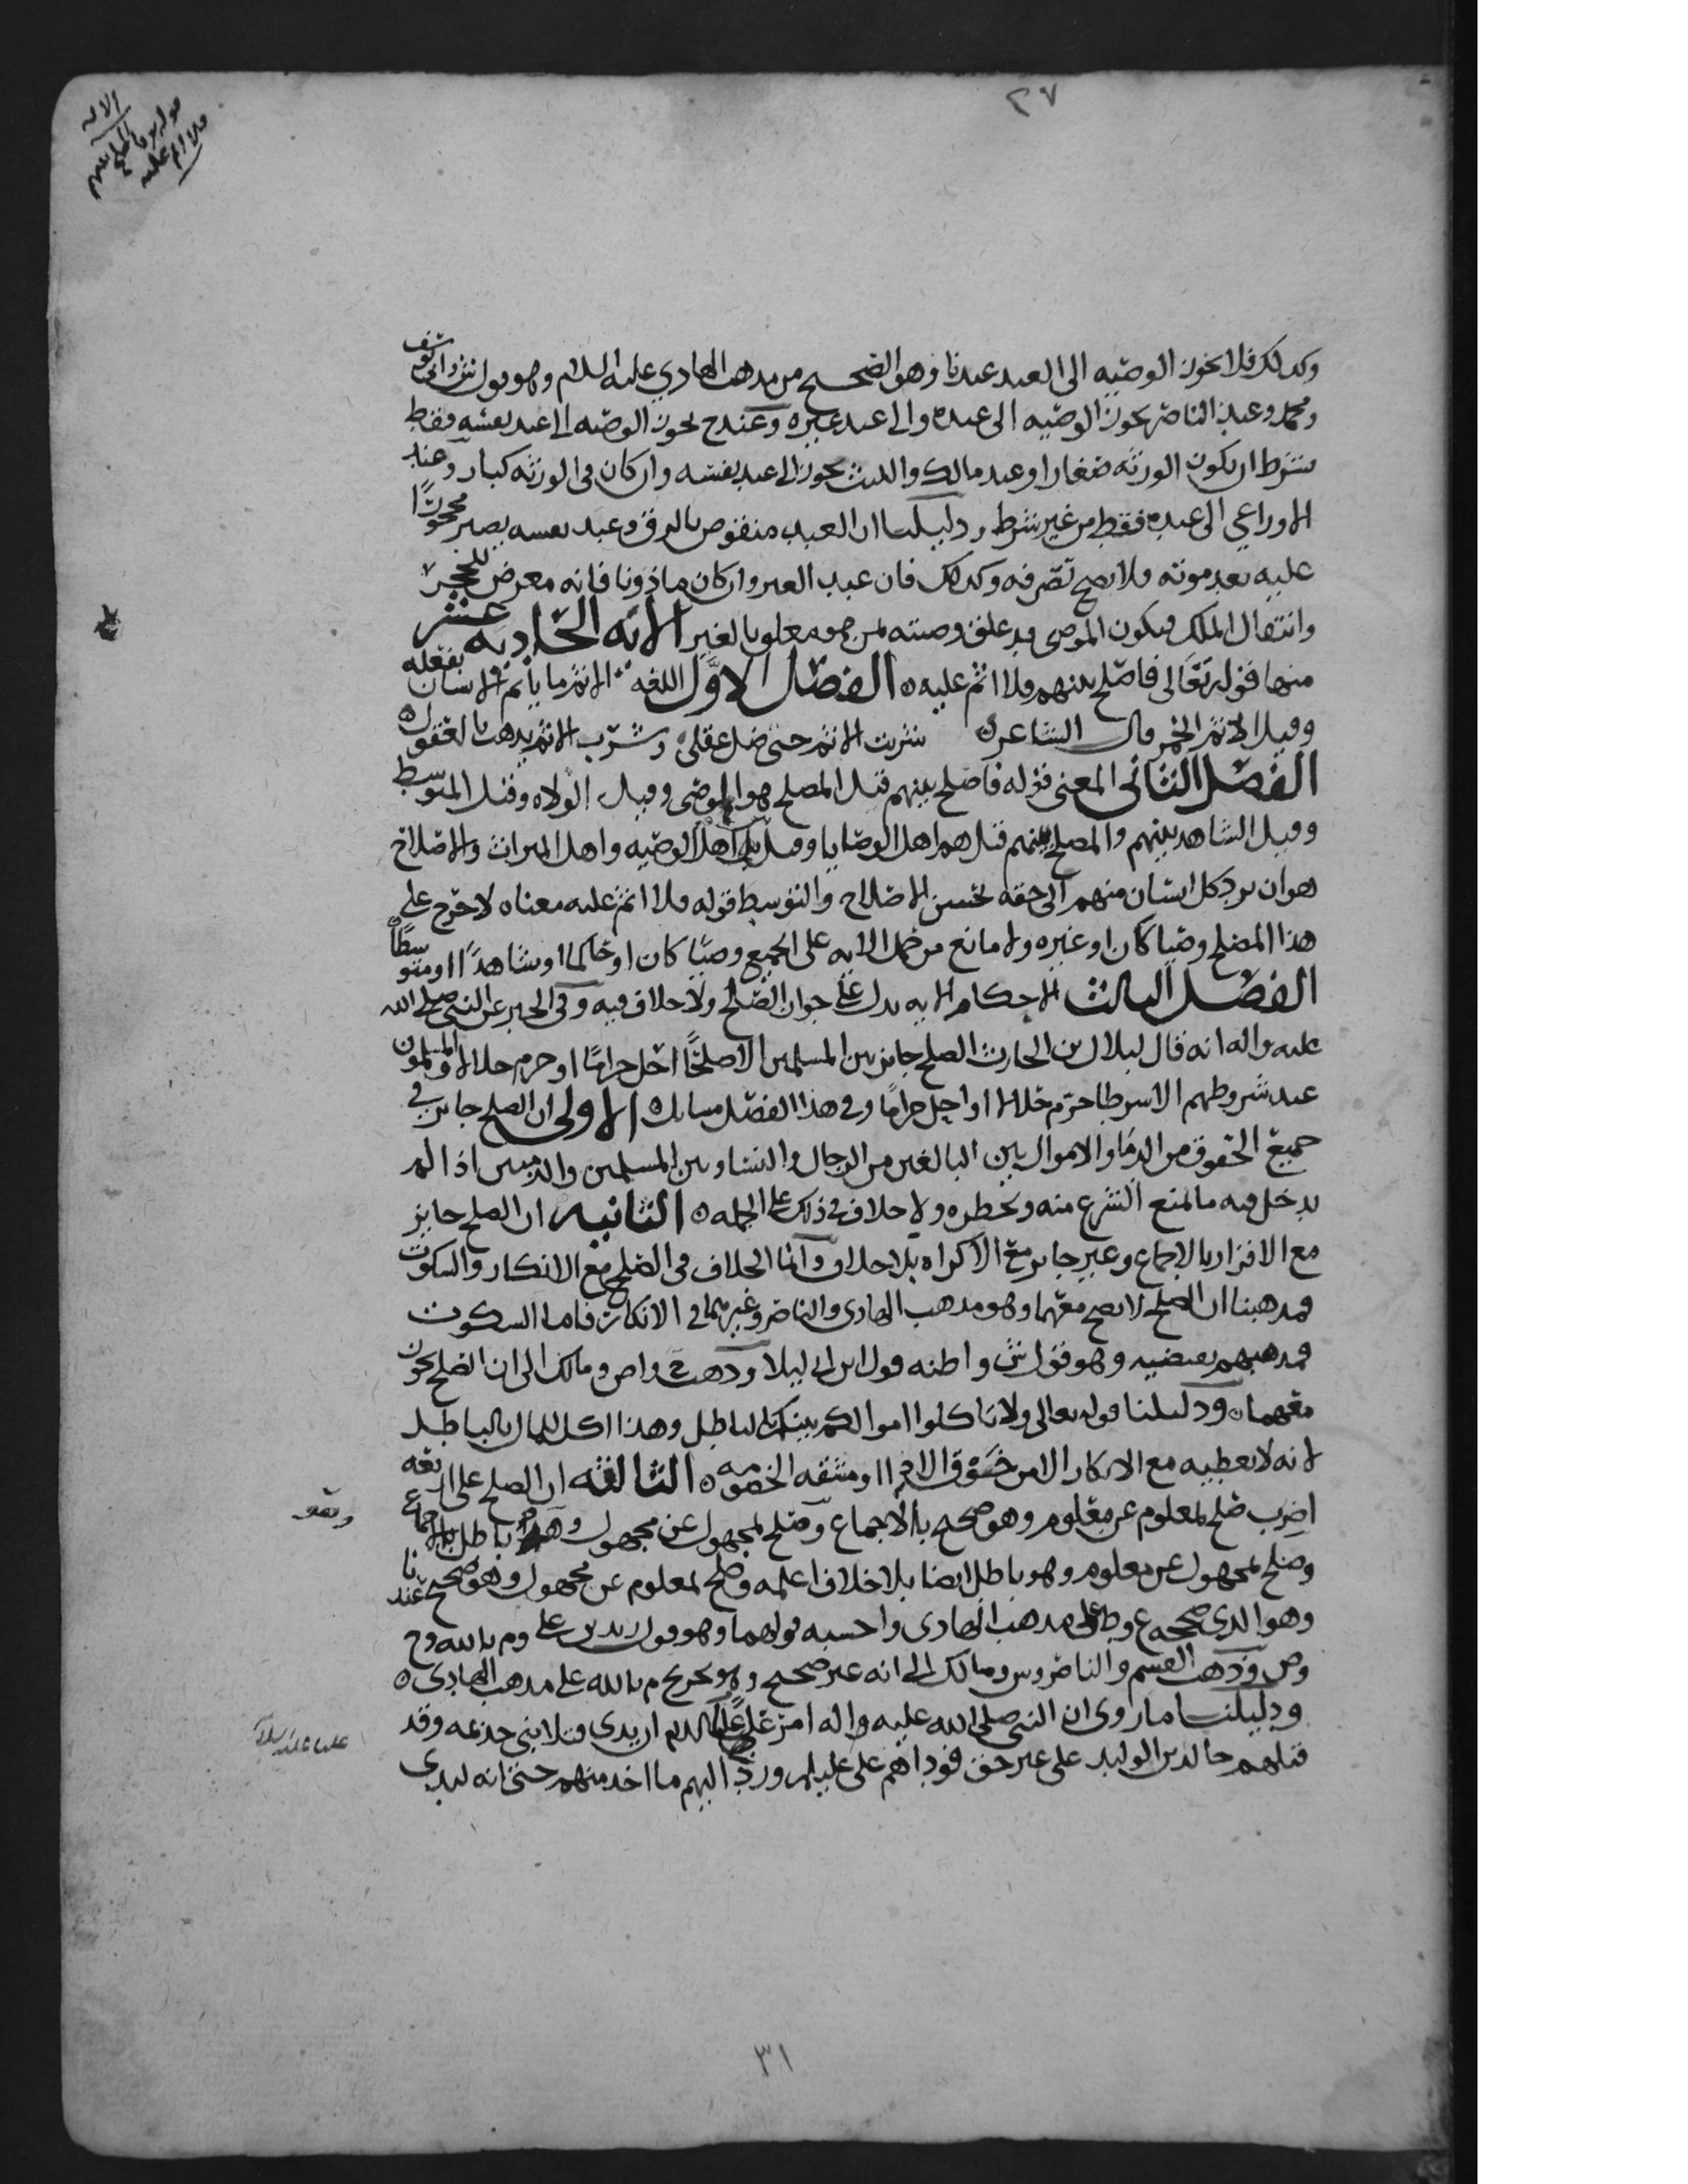 ٢٧
الايه
وكذلك فلا يجوز الوصيه الى العبد عندنا وهو الصحيح من مذهب الهادي عليه السلام وهو قول ش وابي يوسف
ومحمد وعند الناصر يجوز الوصيه الى عبده والى عبد غيره وعند ح يجوز الوصيه الى عبد نفسه فقط
بشرط ان يكون الورثه صغارا وعند مالك والليث يجوز الى عبد نفسه وان كان في الورثه كبار وعند
الاوزاعي الى عبده فقط من غير شرط ودليلنا ان العبد منقوص بالرق وعبد نفسه يصير محجورًا
عليه بعد موته فلا يصح تصرفه وكذلك فان عبد الغير وان كان ماذونا فانه معرض للحجر
وانتقال الملك فيكون الموصي قد علق وصيته لمن هو مغلوب بالغير الايه الحاديه عشر
منها قوله تعالى فاصلح بينهم فلا اثم عليه ٥ الفصل الاول اللغه الاثم ما ياثم الانسان بفعله
وقيل الاثم الخمر قال الشاعر ٥ شربت الاثم حتى ضل عقلي وشرب الاثم يذهب بالعقول ٥
الفصل الثاني المعنى قوله فاصلح بينهم قيل المصلح هو الموصى وقيل الولاه وقيل المتوسط
وقيل الشاهد بينهم والمصلح بينهم قيل هم اهل الوصايا وقيل اهل الوصيه واهل الميراث والاصلاح
هو ان يرد كل انسان منهم الى حقه بحسن الاصلاح والتوسط قوله فلا اثم عليه معناه لا حرج على
هذا المصلح وصيا كان او غيره ولا مانع من حمل الايه على الجميع وصيًا كان او حاكما او شاهدًا او متوسطًا
الفصل الثالث الاحكام الايه يدل على جواز الصلح ولا خلاف فيه وفي الخبر عن النبي صلى الله
عليه واله انه قال لبلال بن الحارث الصلح جايز بين المسلمين الا صلحًا احل حرامًا او حرم حلالا والمسلمون
عند شروطهم الا شرطا حرم حلالا او احل حرامًا وفي هذا الفصل مسايل ٥ الاولى ان الصلح جايز في
جميع الحقوق من الدما والاموال بين البالغين من الرجال والنسا وبين المسلمين والذميين اذا لم
يدخل فيه ما يمنع الشرع منه ويحظره ولا خلاف في ذلك على الجمله ٥ الثانيه ان الصلح جايز
مع الاقرار بالاجماع وغير جايز مع الاكراه بلا خلاف وانما الخلاف في الصلح مع الانكار والسكوت
فمذهبنا ان الصلح لا يصح معهما وهو مذهب الهادي والناصر وغيرهما في الانكار فاما السكوت
فمذهبهم يقتضيه وهو قول ش واظنه قول ابن ابي ليلا وذهب ح واص ومالك الى ان الصلح يجوز
معهما ٥ ودليلنا قوله تعالى ولا تاكلوا اموالكم بينكم بالباطل وهذا اكل للمال بالباطل
لانه لا يعطيه مع الانكار الا من خشوق الاذى او مشقه الخصومه ٥ الثالثه ان الصلح على اربعه
اضرب صلح بمعلوم عن معلوم وهو صحيح بالاجماع وصلح بمجهول عن مجهول وهو باطل بالاجماع
وصلح بمجهول عن معلوم وهو باطل ايضا بلا خلاف اعلمه وصلح بمعلوم عن مجهول وهو صحيح عندنا
وهو الذي صححه ع وط على مذهب الهادي واحسبه قولهما وهو قول زيد بن علي وم بالله وح
وص وذهب القسم والناصر وش ومالك الى انه غير صحيح وهو تخريج م بالله على مذهب الهادي ٥
ودليلنا ما روي ان النبي صلى الله عليه واله امر عليًا عليه السلم ان يدي قتلا بني جذيمه وقد
قتلهم خالد بن الوليد على غير حق فوداهم علي عليلم ورد اليهم ما اخذ منهم حتى انه ليدي
٣١